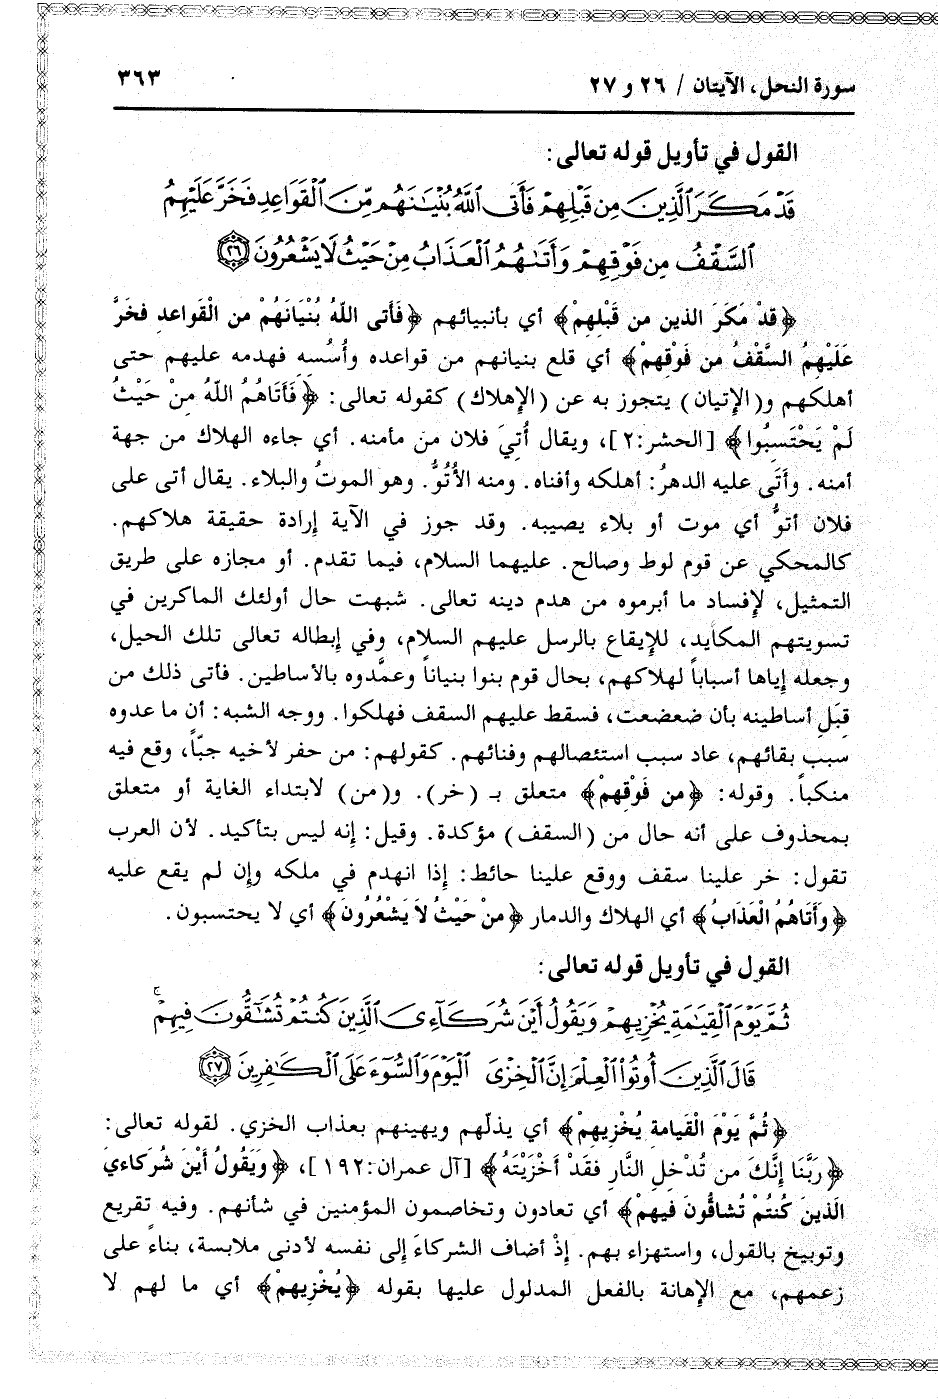 سورة النحل، الآيتان / ٢٦ و ٢٧
٣٦٣
القول في تأويل قوله تعالى:
قَدْ مَكَرَ ٱلَّذِينَ مِن قَبْلِهِمْ فَأَتَى ٱللَّهُ بُنْيَٰنَهُم مِّنَ ٱلْقَوَاعِدِ فَخَرَّ عَلَيْهِمُ
ٱلسَّقْفُ مِن فَوْقِهِمْ وَأَتَىٰهُمُ ٱلْعَذَابُ مِنْ حَيْثُ لَا يَشْعُرُونَ ﴿٢٦﴾
﴿قدْ مَكَرَ الذين من قَبْلِهِمْ﴾ أي بأنبيائهم ﴿فَأَتى اللّهُ بُنْيَانَهُمْ من الْقَواعد فخَرَّ
عَلَيْهِمُ السَّقْفُ من فَوْقهمْ﴾ أي قلع بنيانهم من قواعده وأُسُسِه فهدمه عليهم حتى
أهلكهم و(الإتيان) يتجوز به عن (الإهلاك) كقوله تعالى: ﴿فَأَتَاهُمُ اللّهُ منْ حَيْثُ
لَمْ يَحْتَسِبُوا﴾ [الحشر:٢]، ويقال أُتيَ فلان من مأمنه. أي جاءه الهلاك من جهة
أمنه. وأَتَى عليه الدهرُ: أهلكه وأفناه. ومنه الأُتُوُّ. وهو الموتُ والبلاء. يقال أتى على
فلان أتوٌّ أي موت أو بلاء يصيبه. وقد جوز في الآية إرادة حقيقة هلاكهم.
كالمحكي عن قوم لوط وصالح. عليهما السلام، فيما تقدم. أو مجازه على طريق
التمثيل، لإفساد ما أبرموه من هدم دينه تعالى. شبهت حال أولئك الماكرين في
تسويتهم المكايد، للإيقاع بالرسل عليهم السلام، وفي إبطاله تعالى تلك الحيل،
وجعله إياها أسباباً لهلاكهم، بحال قوم بنوا بنياناً وعمَّدوه بالأساطين. فأتى ذلك من
قبَلِ أساطينه بأن ضعضعت، فسقط عليهم السقف فهلكوا. ووجه الشبه: أن ما عدوه
سبب بقائهم، عاد سبب استئصالهم وفنائهم. كقولهم: من حفر لأخيه جبّاً، وقع فيه
منكباً. وقوله: ﴿من فَوْقهمْ﴾ متعلق بـ (خر). و(من) لابتداء الغاية أو متعلق
بمحذوف على أنه حال من (السقف) مؤكدة. وقيل: إنه ليس بتأكيد. لأن العرب
تقول: خر علينا سقف ووقع علينا حائط: إذا انهدم في ملكه وإن لم يقع عليه
﴿وَأَتَاهُمُ الْعَذَابُ﴾ أي الهلاك والدمار ﴿منْ حَيْثُ لاَ يَشْعُرُونَ﴾ أي لا يحتسبون.
القول في تأويل قوله تعالى:
ثُمَّ يَوْمَ ٱلْقِيَٰمَةِ يُخْزِيهِمْ وَيَقُولُ أَيْنَ شُرَكَآءِىَ ٱلَّذِينَ كُنتُمْ تُشَٰٓقُّونَ فِيهِمْ ۚ
قَالَ ٱلَّذِينَ أُوتُوا۟ ٱلْعِلْمَ إِنَّ ٱلْخِزْىَ ٱلْيَوْمَ وَٱلسُّوٓءَ عَلَى ٱلْكَٰفِرِينَ ﴿٢٧﴾
﴿ثُمَّ يَوْمَ الْقيامة يُخْزيهمْ﴾ أي يذلّهم ويهينهم بعذاب الخزي. لقوله تعالى:
﴿رَبَّنَا إِنَّكَ من تُدْخلِ النَّارِ فقَدْ أَخْزَيْتَهُ﴾ [آل عمران:١٩٢]، ﴿وَيَقُولُ أَيْنَ شُركَاءيَ
الَّذينَ كُنتُمْ تُشاقُّونَ فيهمْ﴾ أي تعادون وتخاصمون المؤمنين في شأنهم. وفيه تقريع
وتوبيخ بالقول، واستهزاء بهم. إذْ أضاف الشركاءَ إلى نفسه لأدنى ملابسة، بناءً على
زعمهم، مع الإهانة بالفعل المدلول عليها بقوله ﴿يُخْزيهمْ﴾ أي ما لهم لا